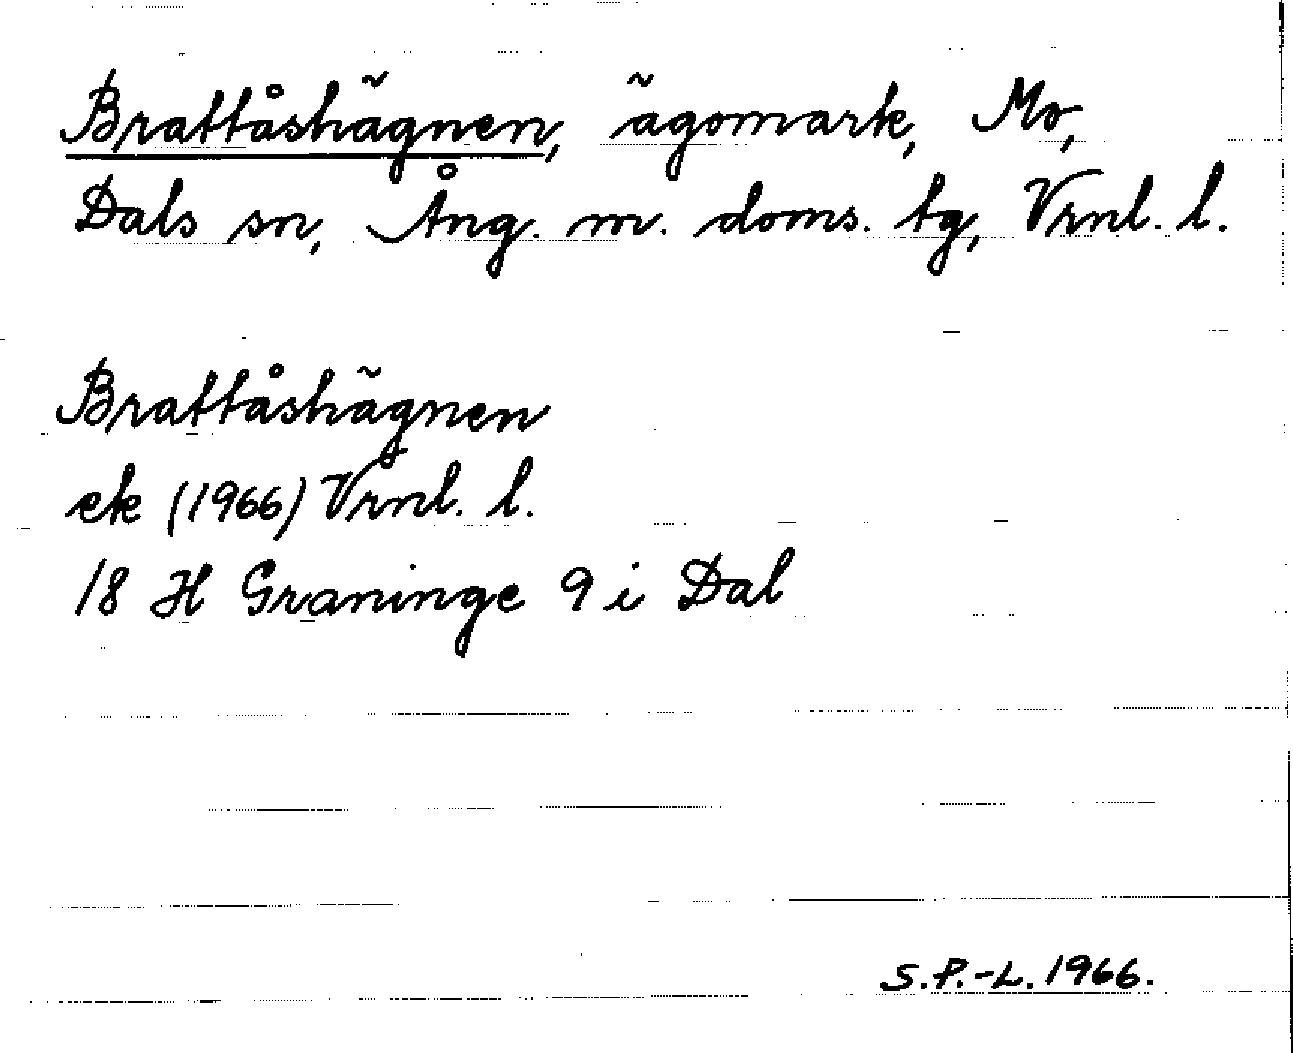 Brattåshägnen, ägomark, Mo,
Dals sn, Ång. m. doms. tg, Vrnl. l.
Brattåshägnen
ek (1966) Vrnl. l.
18 H Graninge 9 i Dal
S.P.-L. 1966.